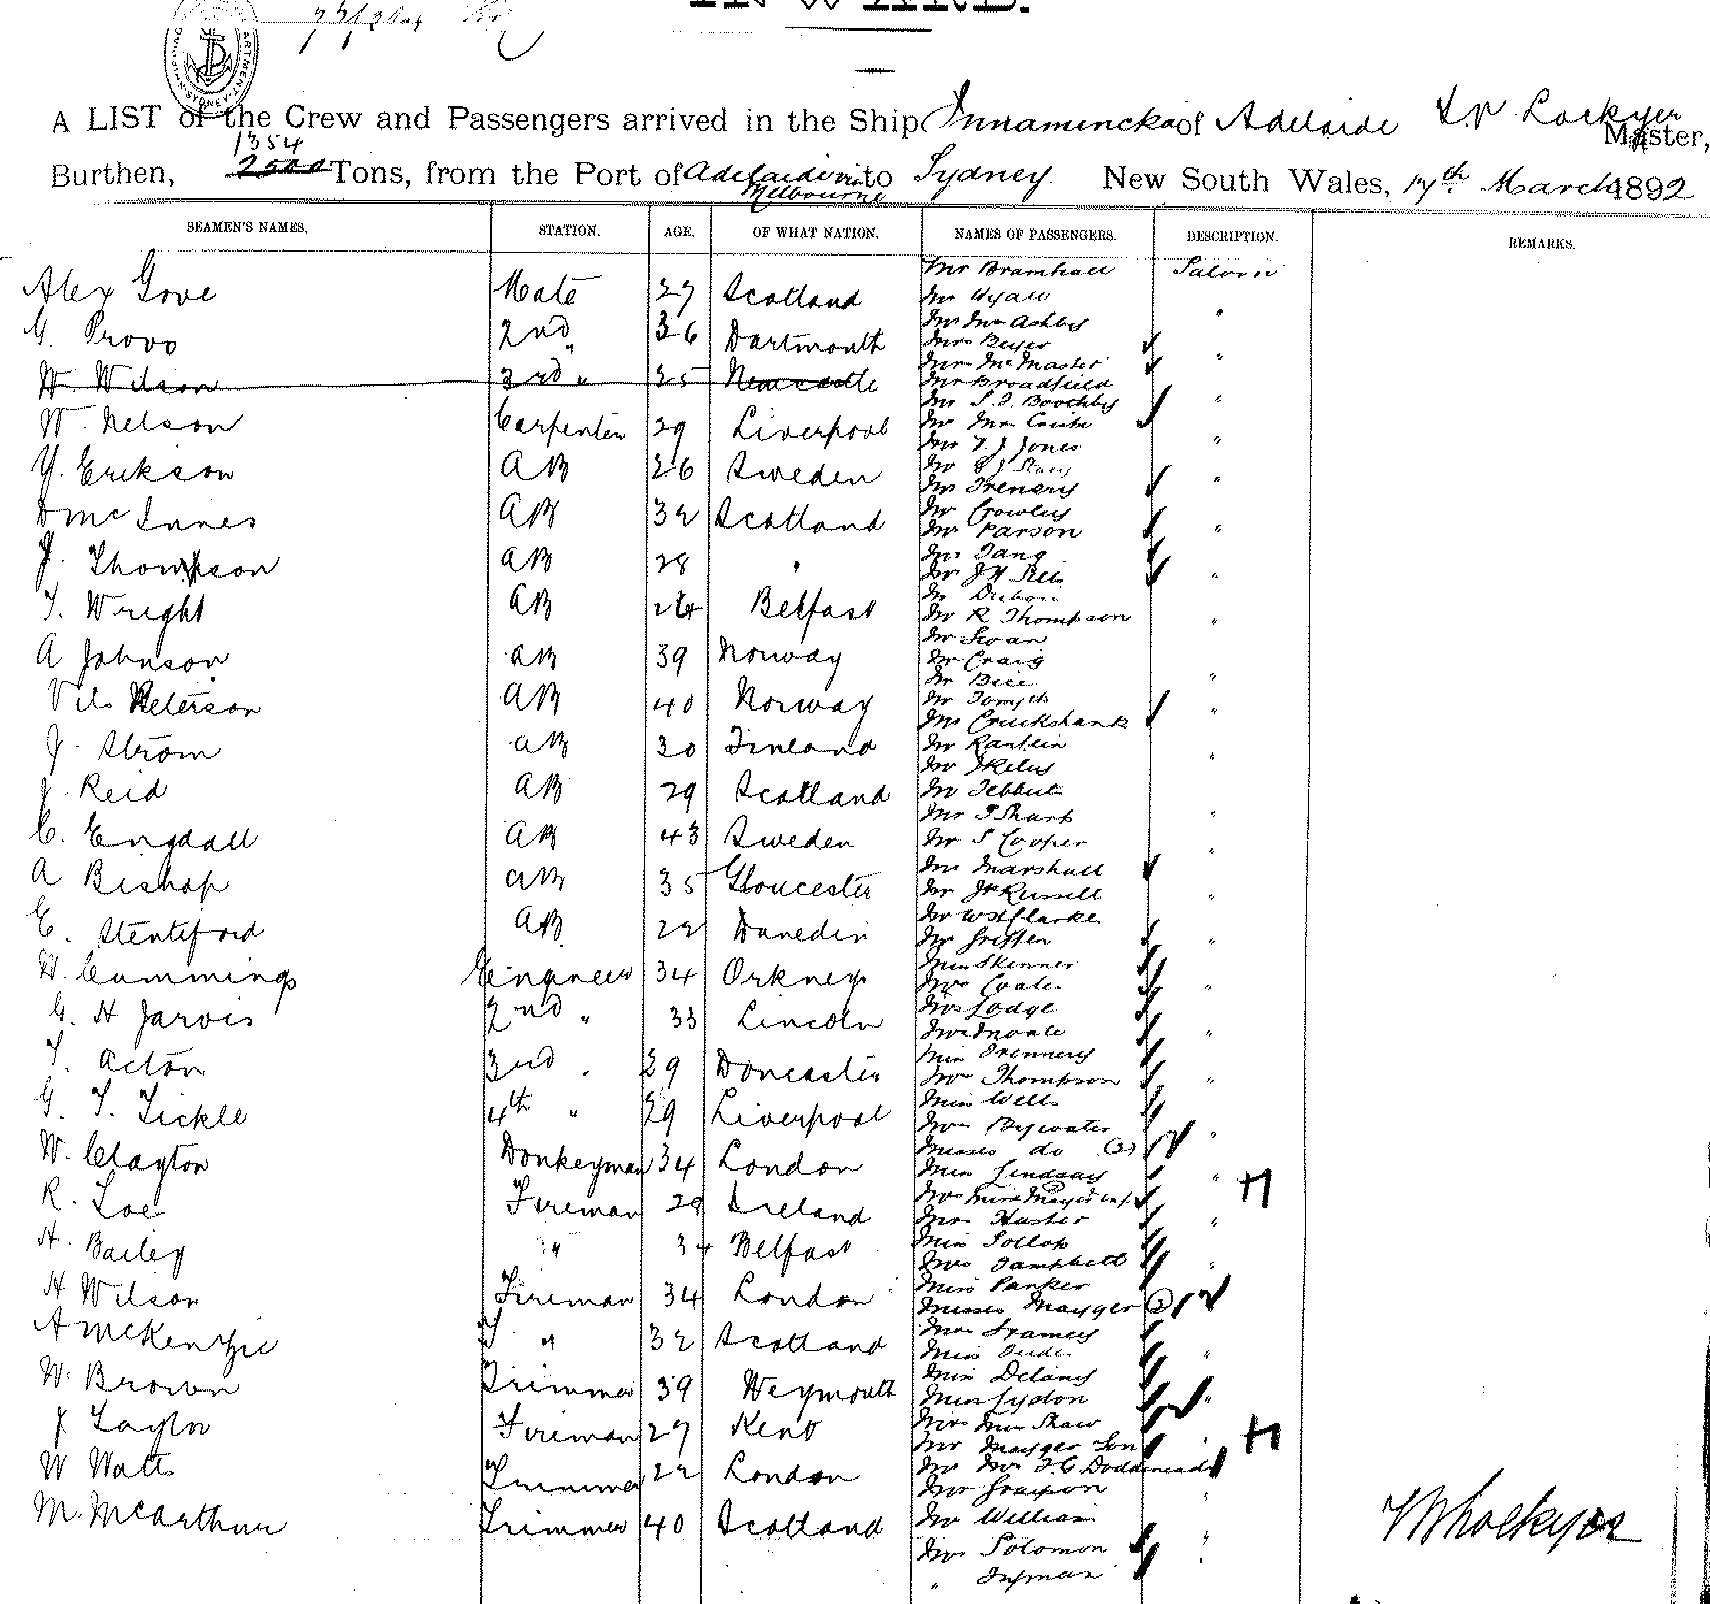 INWARD.
A LIST of the Crew and Passengers arrived in the Ship Innamincka of Adelaide Lockyer Master,
1354
Burthen, 2500 Tons, from the Port of Adelaide via Melbourne to Sydney New South Wales, 17th March 1892
SEAMEN'S NAMES, STATION. AGE. OF WHAT NATION. NAMES OF PASSENGERS. DESCRIPTION. REMARKS.
Mr Bramhall Saloon
Alex Gove Mate 27 Scotland
Mr Wyall
Mr Mrs Ashby
G. Provo 2nd " 36 Dartmouth
Mrs McMaster
W. Wilson 3rd " 25 Newcastle
Mr Broadfield
Mr Boothby
W. Nelson Carpenter 29 Liverpool
Mr T. J Jones
Y. Erikson AB 26 Sweden
Mrs Trenery
D McInnes AB 32 Scotland
Mr Crowley
Mr Parson
J. Thompson AB 28 "
T. Wright AB 24 Belfast
Mr R Thompson
Mr Swan
A Johnson AB 39 Norway
Mr Craig
Mr Bice
Peterson AB 40 Norway
Mr Forsyth
Mrs Cruikshank
J. Strom AB 30 Finland
Mr Rantlin
J. Reid AB 29 Scotland
Mr Tebbutt
Mr T Sharp
C. Engdall AB 43 Sweden
Mr S Cooper
Mrs Marshall
A Bishop AB 35 Gloucester
Mr Russell
Mr W H Clarke
E. Stentiford AB 22 Dunedin
Mr Griffen
Miss Skenner
W. Cummings Engineer 34 Orkney
Mrs Coate
Mrs Lodge
G. H Jarvis 2nd " 33 Lincoln
Miss Trennery
T. Acton 3rd " 29 Doncaster
Mrs Thompson
Miss Wells
G. T. Tickle 4th " 29 Liverpool
Mrs Bywater
Misses do
W. Clayton Donkeyman 34 London
Miss Lindsay
R. Loe Fireman 28 Ireland
Mrs Haslor
A. Bailey " 34 Belfast
Mrs Campbell
Miss Parker
H Wilson Fireman 34 London
Misses Mayger
A McKenzie F " 32 Scotland
Miss Delany
W. Brown Trimmer 39 Weymouth
Miss Lydon
Mr Mrs Shaw
J Taylor Fireman 27 Kent
Mr Mayger Son
W Watts Trimmer 22 London
Mr Mrs
Mr Grayson
M. McArthur Trimmer 40 Scotland
Mr William
Mrs Solomon
" Inman
Lockyer